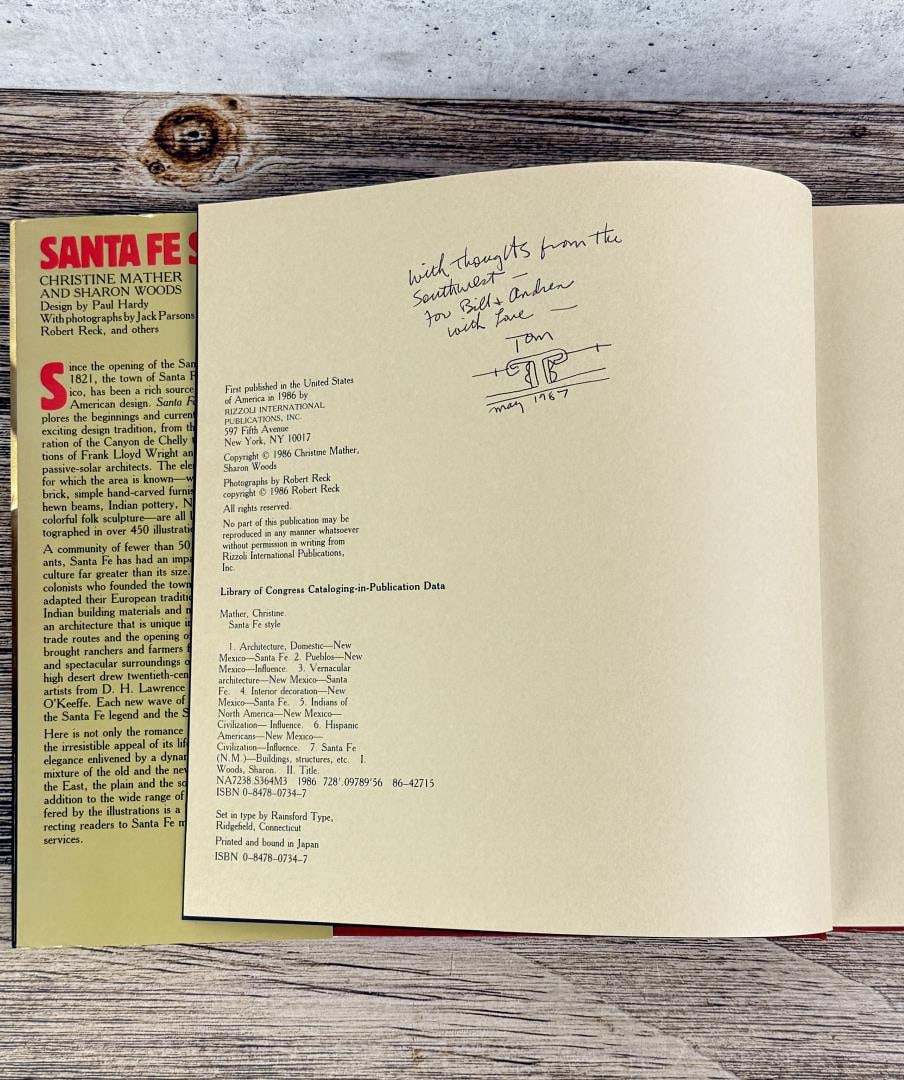 SANTA FE S
CHRISTINE MATHER
AND SHARON WOODS
Design by Paul Hardy
With photographs by Jack Parsons
Robert Reck, and others
Since the opening of the San
1821, the town of Santa F
ico, has been a rich source
American design. Santa Fe
plores the beginnings and current
exciting design tradition, from th
ration of the Canyon de Chelly
tions of Frank Lloyd Wright an
passive-solar architects. The ele
for which the area is known—w
brick, simple hand-carved furnis
hewn beams, Indian pottery, N
colorful folk sculpture—are all l
tographed in over 450 illustrati
A community of fewer than 50
ants, Santa Fe has had an impa
culture far greater than its size.
colonists who founded the town
adapted their European traditio
Indian building materials and n
an architecture that is unique i
trade routes and the opening o
brought ranchers and farmers f
and spectacular surroundings o
high desert drew twentieth-cen
artists from D. H. Lawrence
O'Keeffe. Each new wave of
the Santa Fe legend and the S
Here is not only the romance
the irresistible appeal of its lif
elegance enlivened by a dynam
mixture of the old and the new
the East, the plain and the so
addition to the wide range of
fered by the illustrations is a
recting readers to Santa Fe m
services.
With thoughts from the
Southwest —
for Bill & Andrea
with Love —
Tom
May 1987
First published in the United States
of America in 1986 by
RIZZOLI INTERNATIONAL
PUBLICATIONS, INC.
597 Fifth Avenue
New York, NY 10017
Copyright © 1986 Christine Mather,
Sharon Woods
Photographs by Robert Reck
copyright © 1986 Robert Reck
All rights reserved.
No part of this publication may be
reproduced in any manner whatsoever
without permission in writing from
Rizzoli International Publications,
Inc.
Library of Congress Cataloging-in-Publication Data
Mather, Christine.
Santa Fe style
1. Architecture, Domestic—New
Mexico—Santa Fe. 2. Pueblos—New
Mexico—Influence. 3. Vernacular
architecture—New Mexico—Santa
Fe. 4. Interior decoration—New
Mexico—Santa Fe. 5. Indians of
North America—New Mexico—
Civilization—Influence. 6. Hispanic
Americans—New Mexico—
Civilization—Influence. 7. Santa Fe
(N.M.)—Buildings, structures, etc. I.
Woods, Sharon. II. Title.
NA7238.S364M3 1986 728'.09789'56 86-42715
ISBN 0-8478-0734-7
Set in type by Rainsford Type,
Ridgefield, Connecticut
Printed and bound in Japan
ISBN 0-8478-0734-7